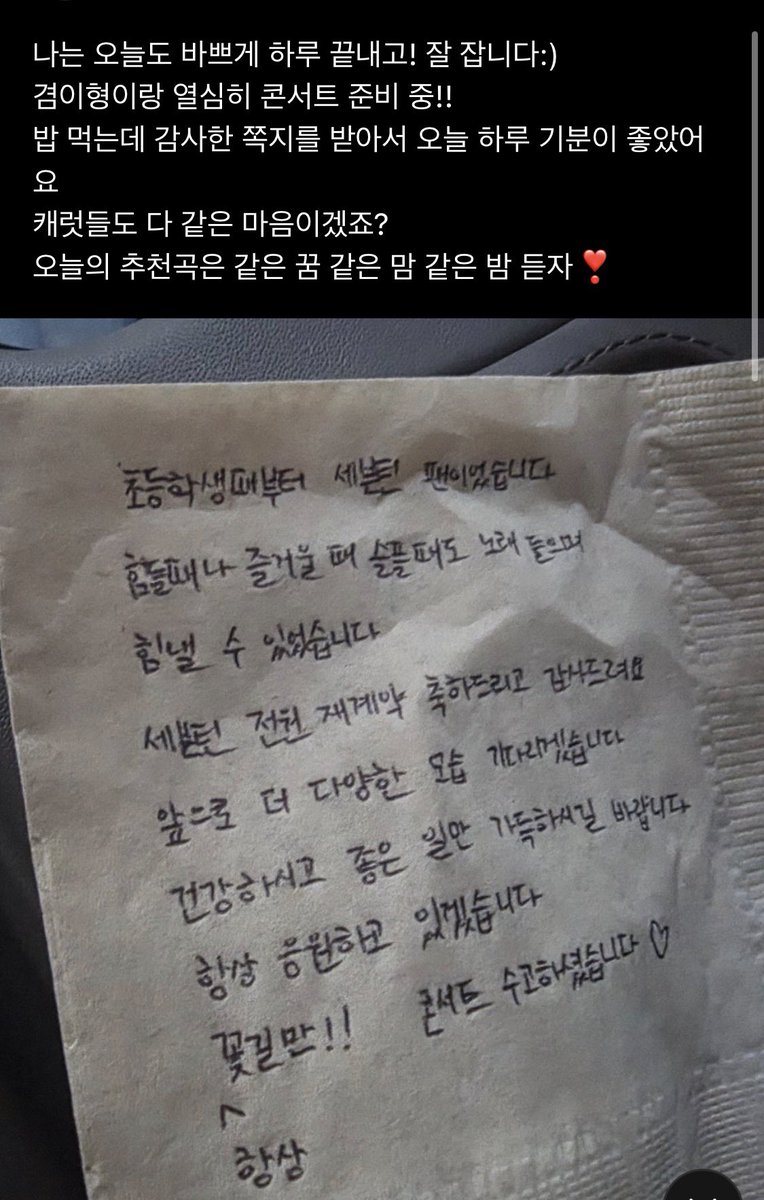 나는 오늘도 바쁘게 하루 끝내고! 잘 잡니다:)
겸이형이랑 열심히 콘서트 준비 중!!
밥 먹는데 감사한 쪽지를 받아서 오늘 하루 기분이 좋았어
요
캐럿들도 다 같은 마음이겠죠?
오늘의 추천곡은 같은 꿈 같은 맘 같은 밤 듣자❣️
초등학생때부터 세븐틴 팬이었습니다
힘들때나 즐거울 때 슬플때도 노래 들으며
힘낼 수 있었습니다
세븐틴 전원 재계약 축하드리고 감사드려요
앞으로 더 다양한 모습 기다리겠습니다
건강하시고 좋은 일만 가득하시길 바랍니다
항상 응원하고 있겠습니다
꽃길만!! 콘서트 수고하셨습니다♡
^
항상